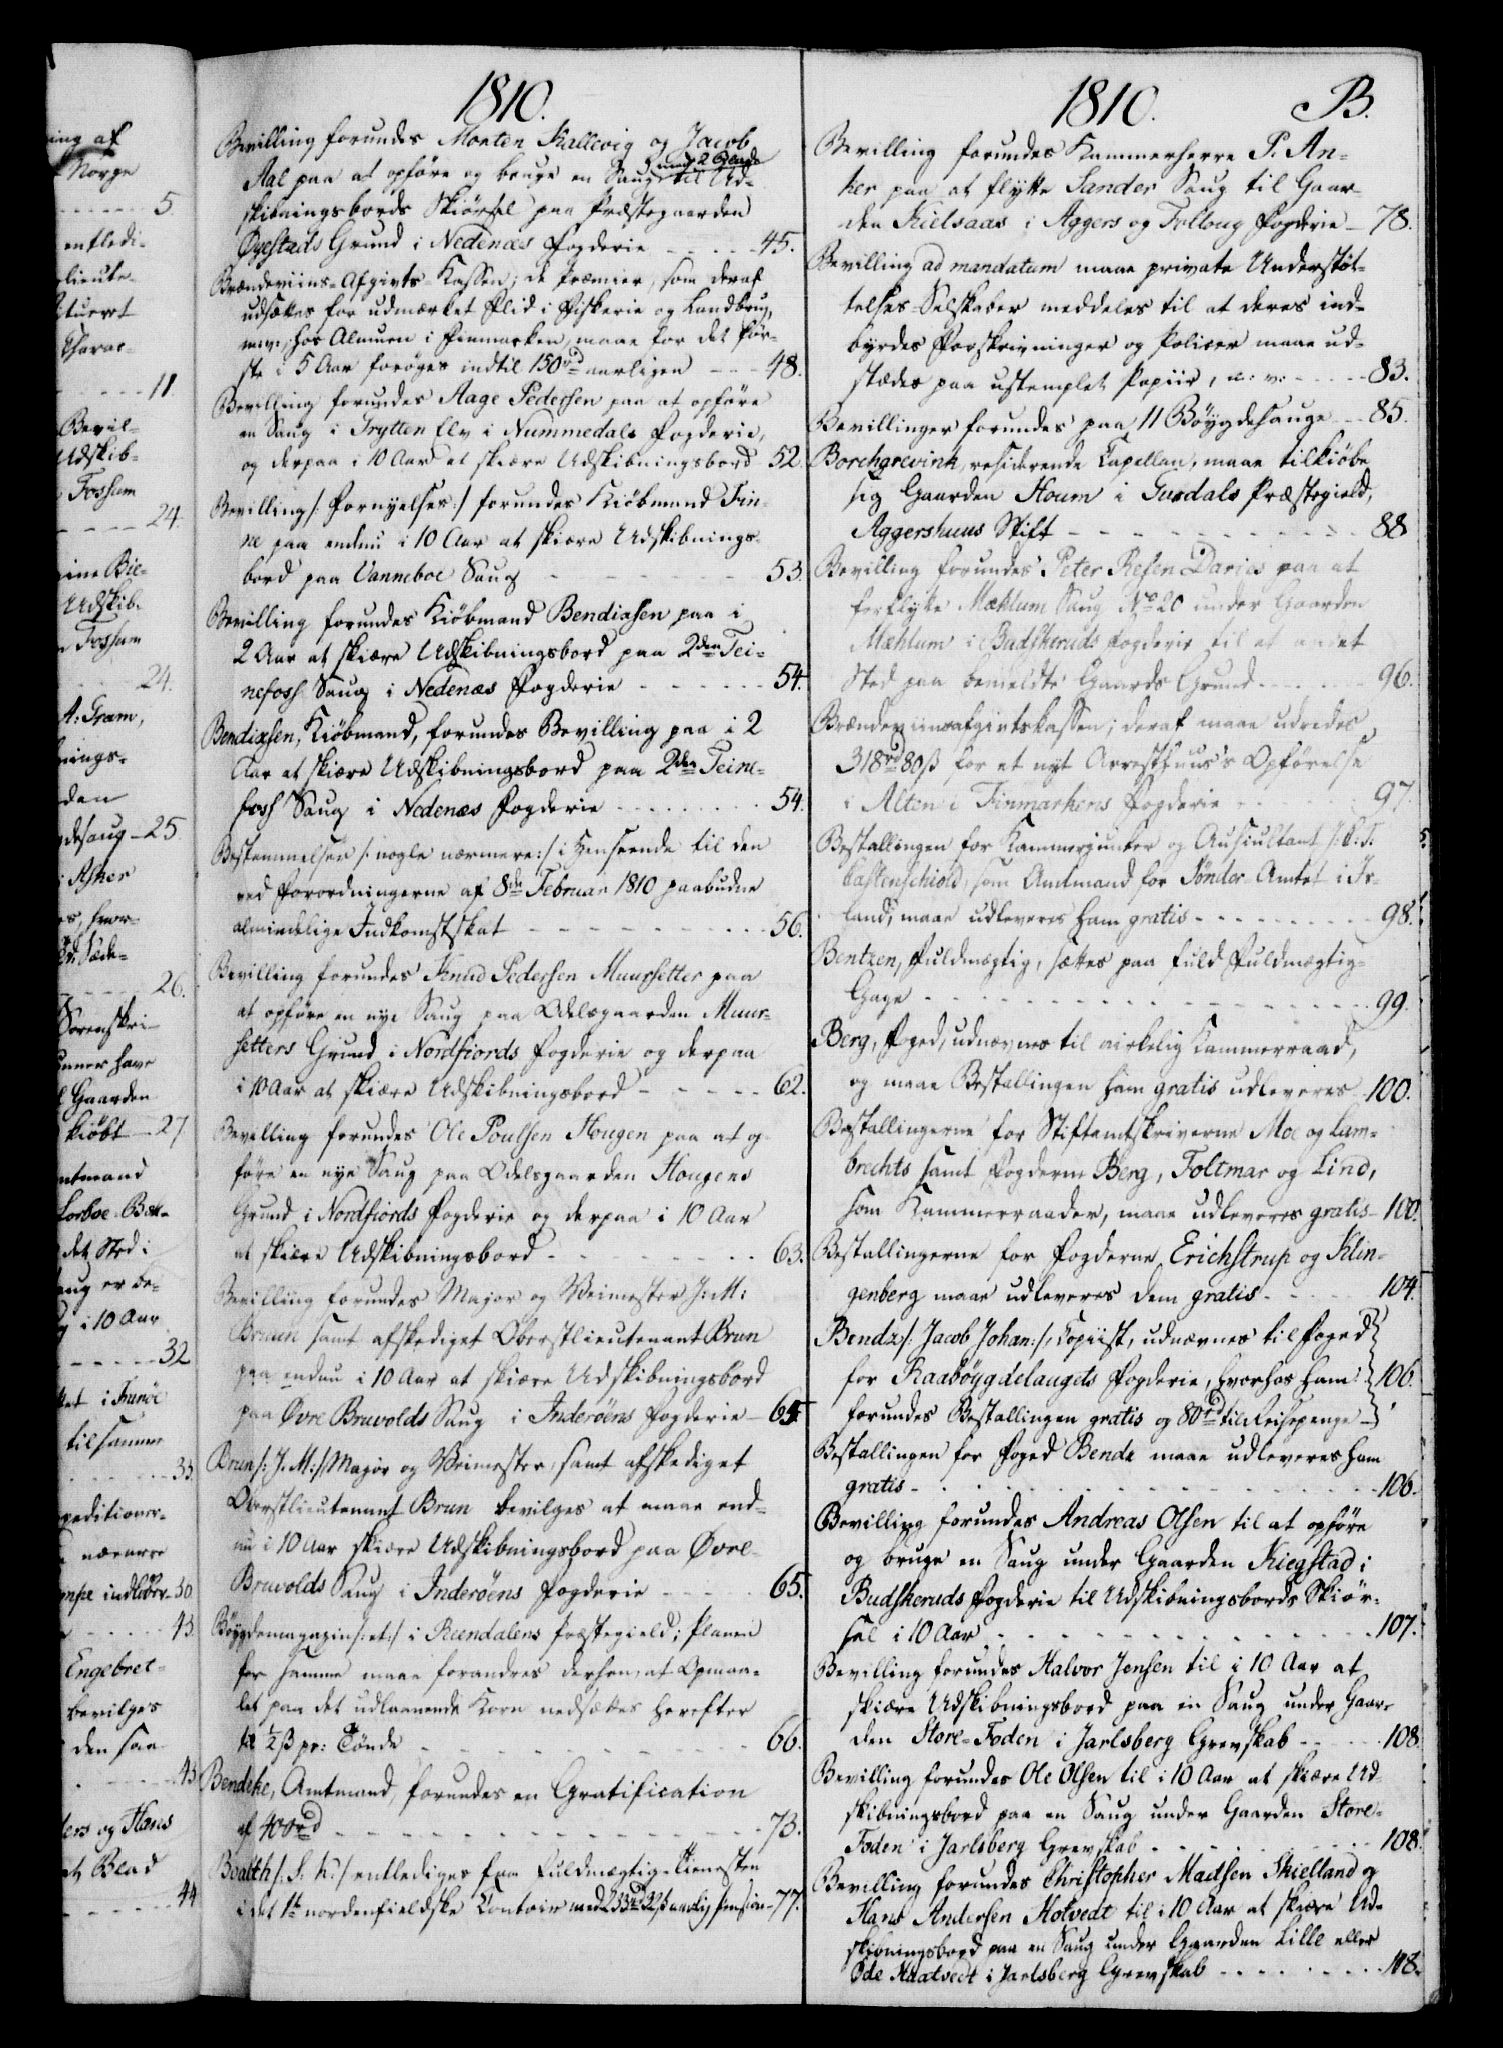 ning af
Norge
5.
entledi-
lieute-
11.
Bevil-
Udskib-
Fossum
24.
Udskib-
Fossum
24.
A: Gram,
nings-
den
desaug - 25
Asker
26.
Sorenskri-
Gaarden
kiöbt - 27
det Sted i
i 10 Aar
32
til samme
33.
43.
Engebret-
bevilges
den saa
43
ders og Hans
et Blad
44
1810.
Bevilling forundes Morten Kallevig og Jacob
Aal paa at opföre og bruge en Saug med 2 Blade til Ud-
skibningsbords Skiörsel paa Præstegaarden
Øyestads Grund i Nedenæs Fogderie - - - - - 45.
Brændeviins-Afgivts-Kassen; de Præmier, som deraf
udsættes for udmærket Flid i Fiskerie og Landbrug,
m.v., hos Almuen i Finmarken, maae for det för-
ste i 5 Aar foröges indtil 150 rd aarligen - - - 48.
Bevilling forundes Aage Pedersen paa at opföre
en Saug i Trytten Elv i Nummedals Fogderie,
og derpaa i 10 Aar at skiære Udskibningsbord - 52.
Bevilling /: Fornyelses :/ forundes Kiöbmand Fin-
ne paa endnu i 10 Aar at skiære Udskibnings-
bord paa Vanneboe Saug - - - - - 53.
Bevilling forundes Kiöbmand Bendixsen paa i
2 Aar at skiære Udskibningsbord paa 2den Tei-
nefoss Saug i Nedenæs Fogderie - - - - - 54.
Bendixsen, Kiöbmand, forundes Bevilling paa i 2
Aar at skiære Udskibningsbord paa 2den Teine-
foss Saug i Nedenæs Fogderie - - - - - 54.
Bestemmelser /: nogle nærmere :/ i Henseende til den
ved Forordningerne af 8de Februar 1810 paabudne
almindelige Indkomstskat - - - - - 56.
Bevilling forundes Knud Pedersen Muursetter paa
at opföre en nye Saug paa Odelsgaarden Muur-
setters Grund i Nordfiords Fogderie og derpaa
i 10 Aar at skiære Udskibningsbord - - - - - 62.
Bevilling forundes Ole Poulsen Hougen paa at op-
före en nye Saug paa Odelsgaarden Hougens
Grund i Nordfiords Fogderie og derpaa i 10 Aar
at skiære Udskibningsbord - - - - - 63.
Bevilling forundes Major og Veimester J: M:
Bruun samt afskediget Oberstlieutenant Brun
paa endnu i 10 Aar at skiære Udskibningsbord
paa Øvre Bruvolds Saug i Inderöens Fogderie - 64.
Brun /: J. M: / Major og Veimester, samt afskediget
Oberstlieutenant Brun bevilges at maae end-
nu i 10 Aar skiære Udskibningsbord paa Øvre
Bruvolds Saug i Inderöens Fogderie - - - - - 65.
Böygdemagazin /: et :/ i Reendalens Præstegield; Planen
for samme maae forandres derhen, at Opmaa-
let paa det udlaanende Korn nedsættes herefter
til ½ ß pr: Tönde - - - - - 66.
Bendeke, Amtmand, forundes en Gratification
af 400 rd - - - - - 73.
Boalth /: S. K: / entlediges fra Fuldmægtig-Tienesten
i det 1te nordenfieldske Contoir med 233 rd 32 ß aarlig Pension - 77.
1810. B.
Bevilling forundes Kammerherre P. An-
ker paa at flytte Sander Saug til Gaar-
den Kielsaas i Aggers og Folloug Fogderie - 78.
Bevilling ad mandatum maae private Understöt-
telses-Selskaber meddeles til at deres ind-
byrdes Forskrivninger og Policer maae ud-
stædes paa ustemplet Papiir, m: v: - - - - - 83.
Bevillinger forundes paa 11 Böygdesauge - 85.
Borchgrevink, residerende Capellan, maae tilkiöbe
sig Gaarden Houm i Gusdals Præstegield,
Aggershuus Stift - - - - - 88
Bevilling forundes Peter Refen Darjes paa at
forflytte Mæhlum Saug No 20 under Gaarden
Mæhlum i Budskeruds Fogderie til et andet
Sted paa bemeldte Gaards Grund - - - - - 96.
Brændeviinsafgivtskassen; deraf maae udredes
318 rd 80 ß for et nyt Arresthuus's Opförelse
i Alten i Finmarkens Fogderie - - - - - 97.
Bestallingen for Kammerjunker og Auscultant J. C. T.
Castenschiold, som Amtmand for Sönder Amtet i Is-
land, maae udleveres ham gratis - - - - - 98.
Bentzen, Fuldmægtig, sættes paa fuld Fuldmægtig-
Gage - - - - - 99.
Berg, Foged, udnævnes til virkelig Kammerraad,
og maae Bestallingen ham gratis udleveres - 100.
Bestallingerne for Stiftamtskriverne Moe og Lam-
brechts samt Fogderne Berg, Foltmar og Lind,
som Kammerraader, maae udleveres gratis - 100.
Bestallingerne for Fogderne Erichstrup og Klin-
genberg maae udleveres dem gratis - - - - - 104.
Bendz /: Jacob Johan: /, Copiist, udnævnes til Foged
for Raaböygdelaugets Fogderie, hvorhos ham
forundes Bestallingen gratis og 80 rd til Reisepenge - 106.
Bestallingen for Foged Bendz maae udleveres ham
gratis - - - - - 106.
Bevilling forundes Andreas Olsen til at opföre
og bruge en Saug under Gaarden Kiegstad i
Budskeruds Fogderie til Udskibningsbords Skiör-
sel i 10 Aar - - - - - 107.
Bevilling forundes Halvor Jensen til i 10 Aar at
skiære Udskibningsbord paa en Saug under Gaar-
den Store-Foden i Jarlsberg Grevskab - - - - - 108.
Bevilling forundes Ole Olsen til i 10 Aar at skiære Ud-
skibningsbord paa en Saug under Gaarden Store-
Foden i Jarlsberg Grevskab - - - - - 108.
Bevilling forundes Christopher Madsen Skielland og
Hans Andersen Hotvedt til i 10 Aar at skiære Ud-
skibningsbord paa en Saug under Gaarden Lille eller
Øde Haatvedt i Jarlsberg Grevskab - - - - - 108.